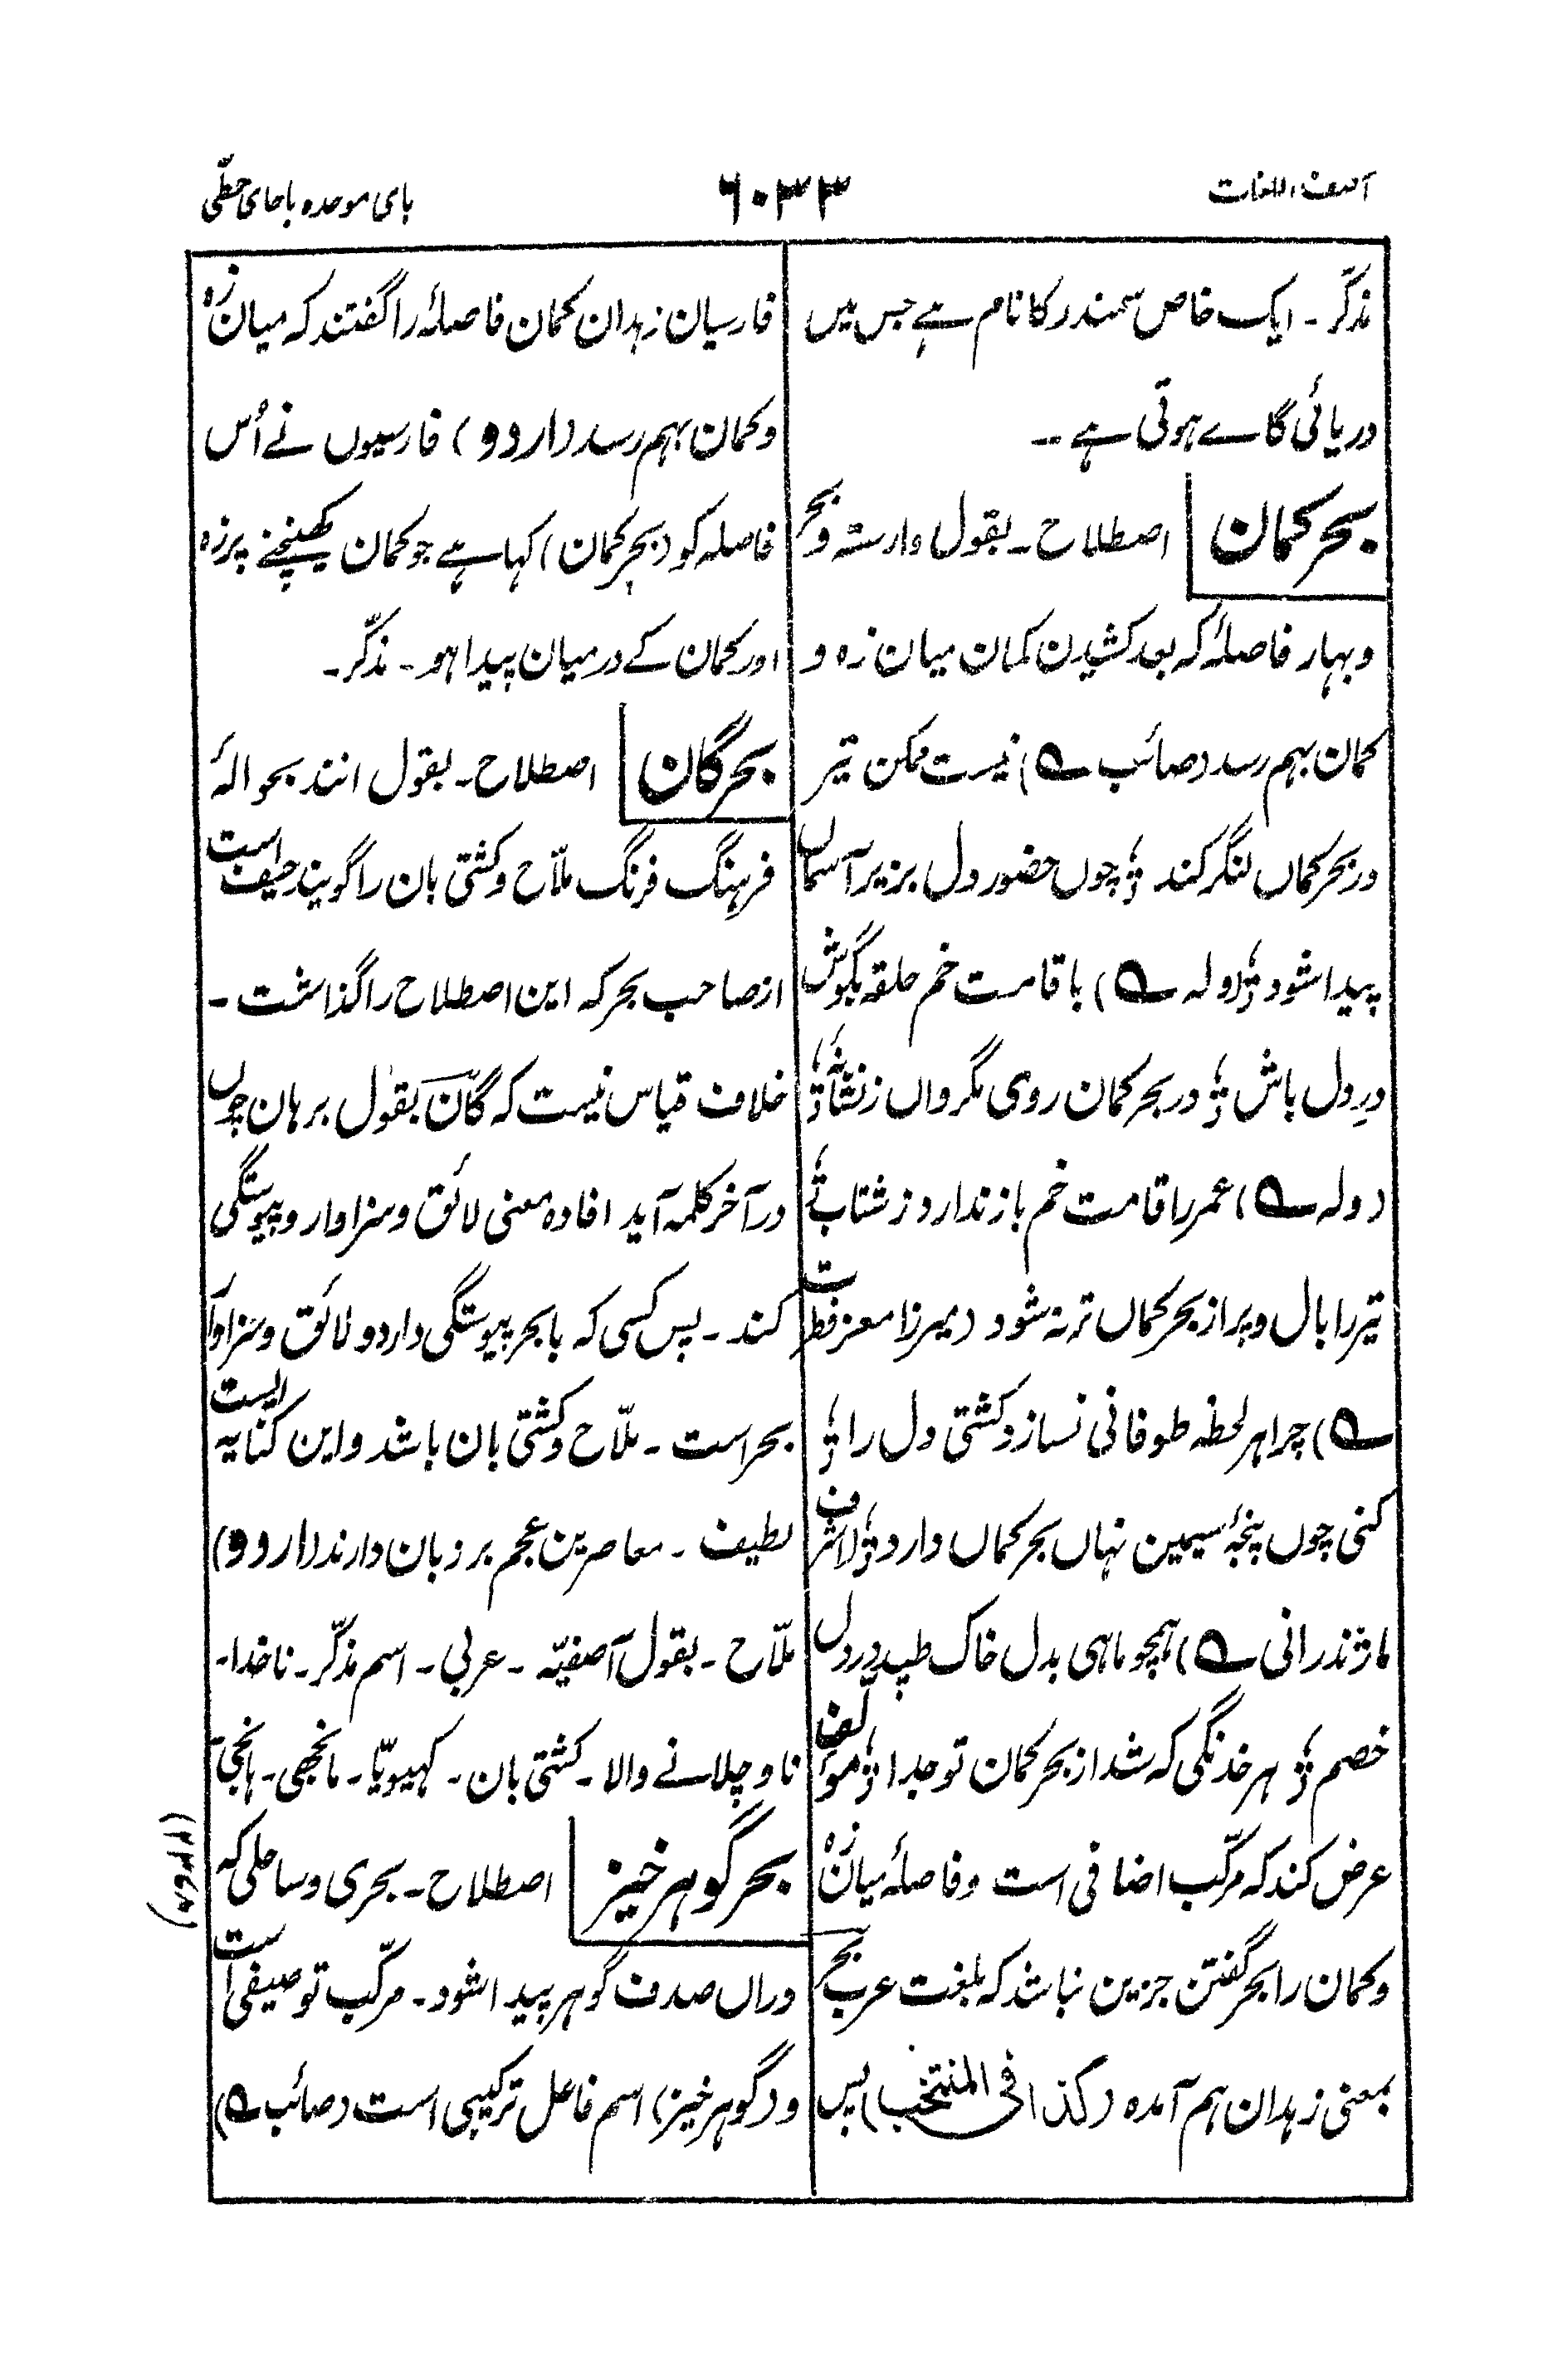 آصف اللغات
۶۰۳۳
بای موحدہ باحای حطّی
مذکّر ۔ ایک خاص سمندر کا نام ہے جس میں
دریائی گاے ہوتی ہے ۔۔
بحر کمان اصطلاح ۔ بقول وارستہ و بحر
و بہار فاصلۂ کہ بعد کشیدن کمان میان زہ و
کمان بہم رسد (صائب ؎) نیست ممکن تیر
در بحر کماں لنگر کند ؛ چوں حضور دل بزیر آسماں
پیدا شود ؛ (ولہ ؎) با قامت خم حلقہ بگوش
درِ دل باش ؛ در بحر کمان روی مگرداں ز نشانہ ؛
(ولہ ؎) عمر را قامت خم باز ندارد ز شتاب ؛
تیر را بال و پر از بحر کماں تر نہ شود (میرزا معز فطرت
؎) چرا ہر لحظہ طوفانی نسازد کشتی دل را ؛
کنی چوں پنجۂ سیمین نہاں بحر کماں دارد ؛ (اشرف
ماژندرانی ؎) ہمچو ماہی بدل خاک طپد در دل
خصم ؛ ہر خدنگی کہ شد از بحر کمان تو جدا ؛ مؤلّف
عرض کند کہ مرکّب اضافی است و فاصلۂ میان زہ
و کمان را بحر گفتن جزین نباشد کہ بلغت عرب بحر
بمعنی زہدان ہم آمدہ (کذا فی المنتخب) پس
فارسیان زہدان کمان فاصلۂ را گفتند کہ میان زہ
و کمان بہم رسد (اردو) فارسیوں نے اُس
فاصلہ کو (بحرِ کمان) کہا ہے جو کمان کھینچنے پر زہ
اور کمان کے درمیان پیدا ہو ۔ مذکّر ۔
بحر گان اصطلاح ۔ بقول انند بحوالۂ
فرہنگ فرنگ ملّاح و کشتی بان را گویند حیف است
از صاحب بحر کہ این اصطلاح را گذاشت ۔
خلاف قیاس نیست کہ گان بقول برہان چوں
در آخر کلمہ آید افادہ معنی لائق و سزاوار و پیوستگی
کند ۔ پس کسی کہ با بحر پیوستگی دارد و لائق و سزاوار
بحر است ۔ ملّاح و کشتی بان باشد و این کنایہ ایست
لطیف ۔ معاصرین عجم بر زبان دارند (اردو)
ملّاح ۔ بقول آصفیّہ ۔ عربی ۔ اسم مذکّر ۔ ناخدا ۔
ناو چلانے والا ۔ کشتی بان ۔ کہیویّا ۔ مانجھی ۔
بحر گوہر خیز اصطلاح ۔ بحری و ساحلی کہ
دراں صدف گوہر پیدا شود ۔ مرکّب توصیفی است
و (گوہر خیز) اسم فاعل ترکیبی است (صائب ؎)